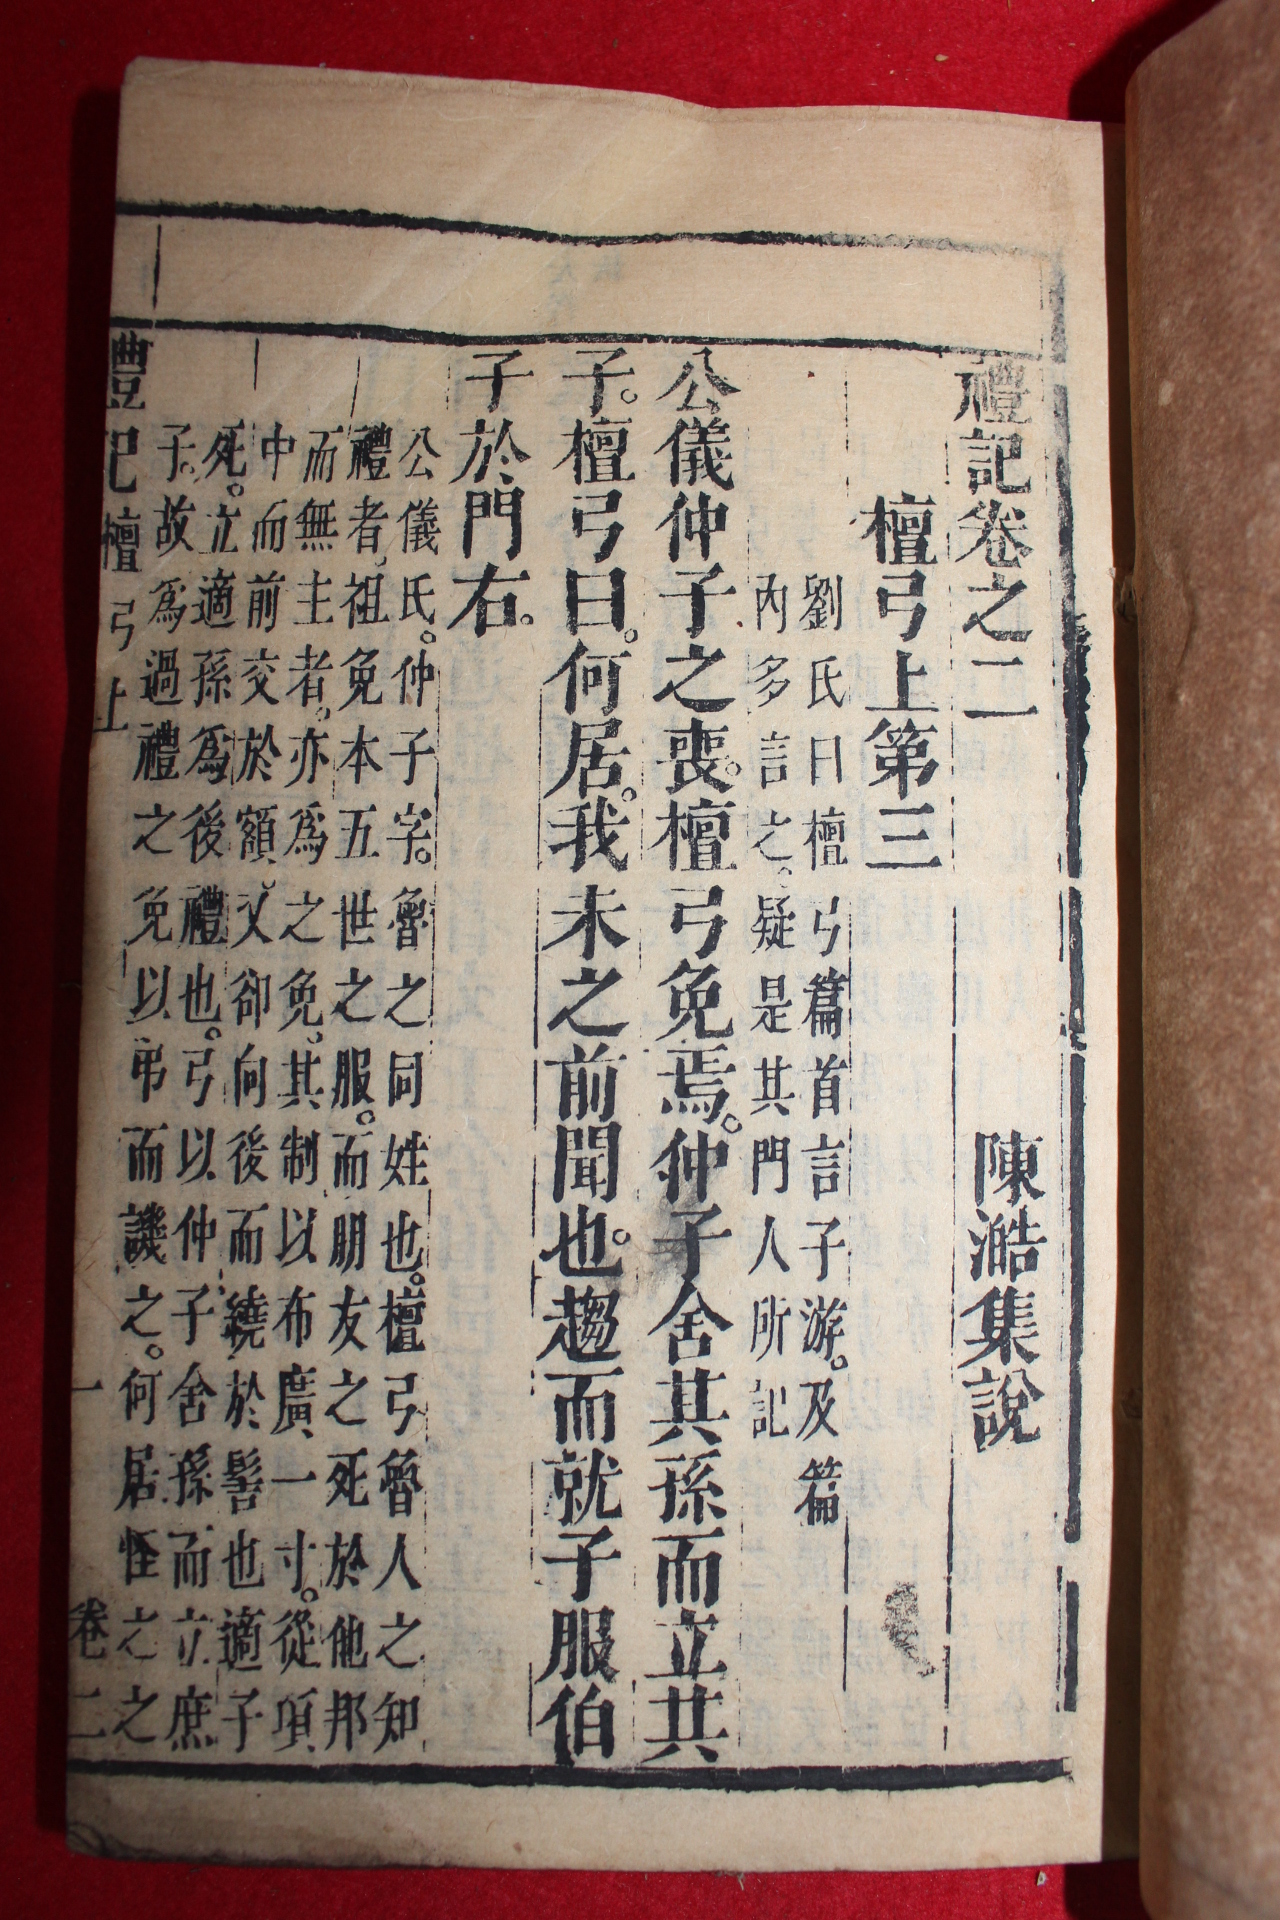 禮記卷之二　陳澔集說
檀弓上第三
劉氏曰檀弓篇首言子游。及篇
內多言之。疑是其門人所記
公儀仲子之喪。檀弓免焉。仲子舍其孫而立其
子。檀弓曰。何居。我未之前聞也。趨而就子服伯
子於門右。
公儀氏。仲子字。魯之同姓也。檀弓魯人之知
禮者。袒免本五世之服。而朋友之死於他邦
而無主者。亦爲之免。其制以布廣一寸。從項
中而前交於額。又卻向後而繞於髻也適子
死。立適孫爲後禮也。弓以仲子舍孫而立庶
子。故爲過禮之免以弔而譏之。何居怪之之
禮記檀弓上　一　卷二